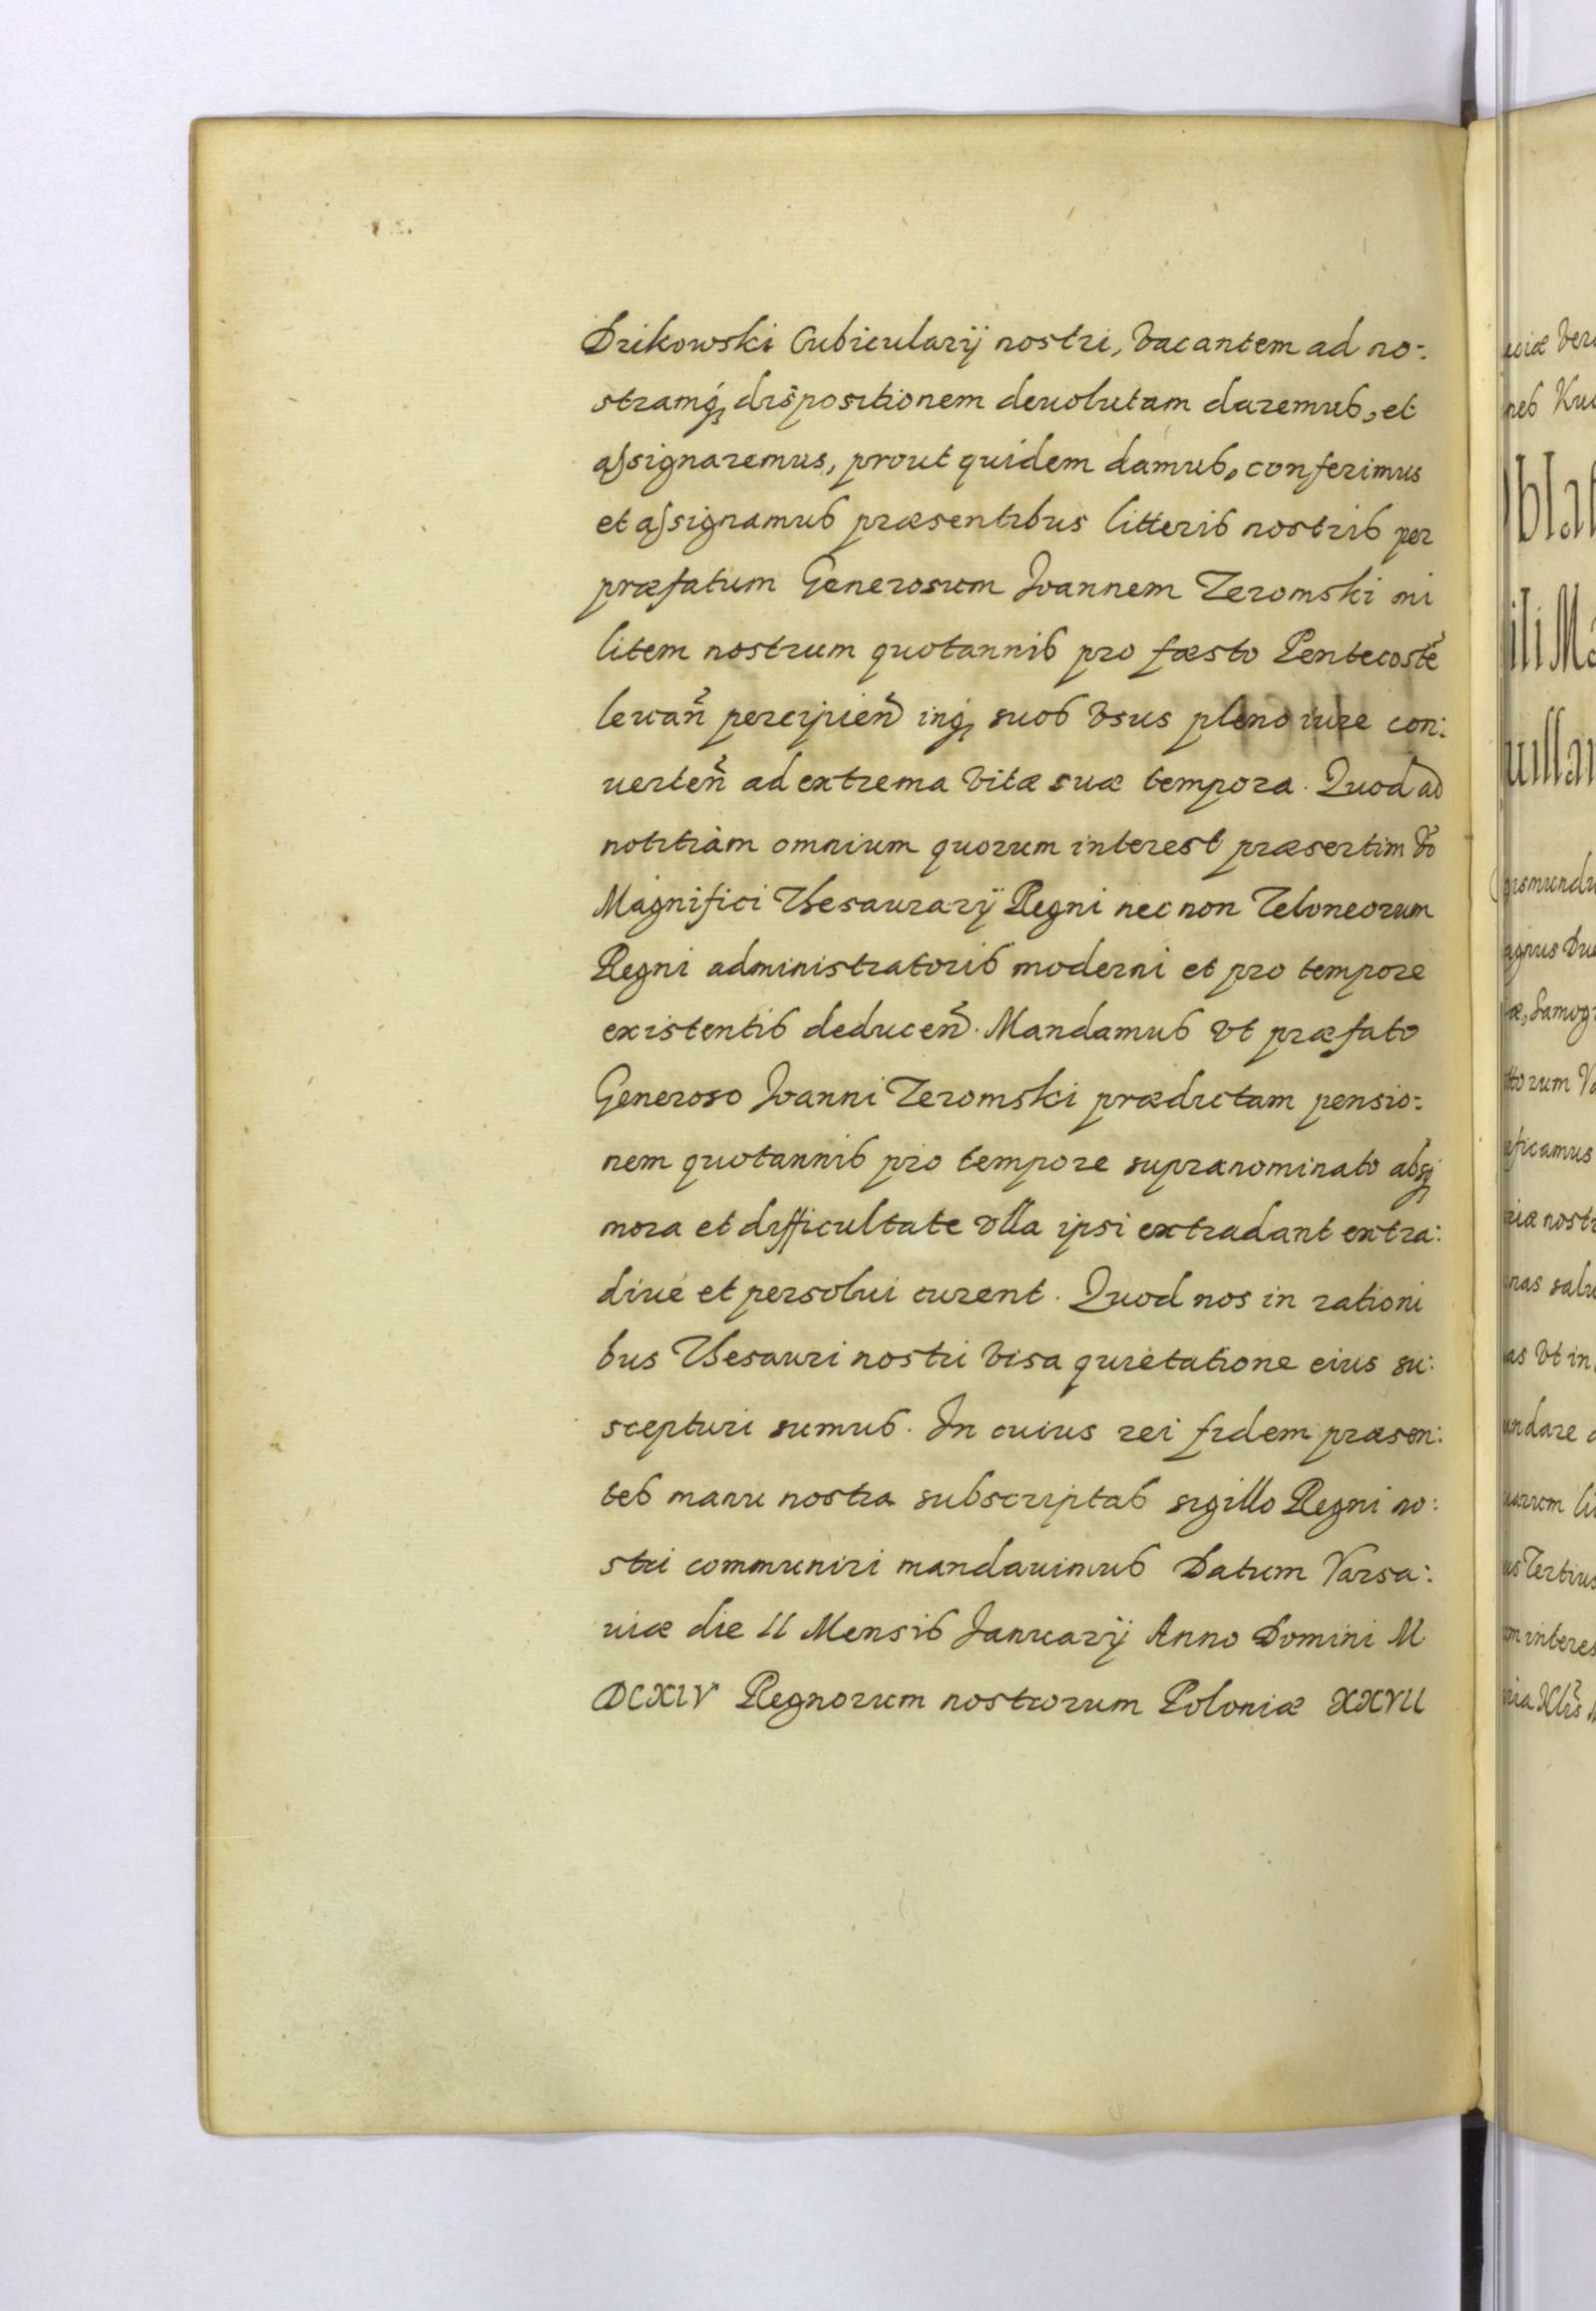 Drikowski Cubicularij nostri, vacantem ad no-:
stramq́ʒ dispositionem deuolutam daremus, et
assignaremus, prout quidem damus, conferimus
et assignamus præsentibus litteris nostris per
præfatum Generosum Joannem Zeromski mi
litem nostrum quotannis pro fæsto Pentecostẽ
leuañ percipieñ inqʒ suos vsus pleno iure con:
uerteñ ad extrema vitæ suæ tempora. Quod ad
notitiam omnium quorum interest præsertim võ
Magnifici Thesaurarij Regni nec non Teloneorum
Regni administratoris moderni et pro tempore
existentis deduceñ. Mandamus vt præfato
Generoso Joanni Zeromski prædictam pensio:
nem quotannis pro tempore supranominato absqʒ
mora et difficultate vlla ipsi extradant extra:
diué et persolui curent. Quod nos in rationi
bus Thesauri nostri visa quietatione eius su:
scepturi sumus. In cuius rei fidem præsen:
tes manu nostra subscriptas sigillo Regni no:
stri communiri mandauimus Datum Varsa:
uiæ die 11 Mensis Januarij Anno Domini M.
DCXIV Regnorum nostrorum Poloniæ XXVII